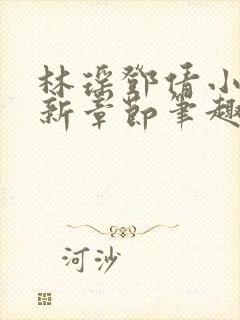 林瑶鄧倩小
新章節筆趣
河沙